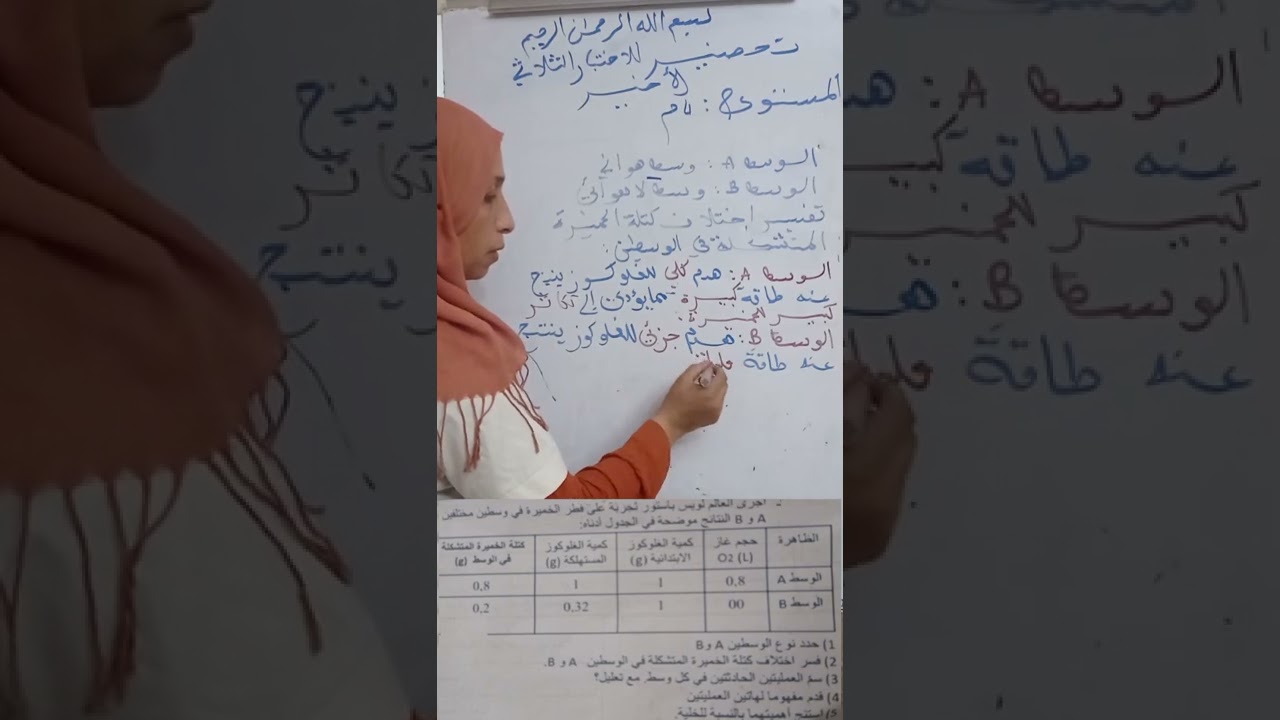 بسم الله الرحمن الرحيم
تحضير للاختبار الثلاثي
الأخير
المستوى: 2م
الوسط A: وسط هوائي
الوسط B: وسط لا هوائي
تفسير اختلاف كتلة الخميرة
المتشكلة في الوسطين:
الوسط A: هدم كلي للغلوكوز ينتج
عنه طاقة كبيرة مما يؤدي إلى تكاثر
كبير للخميرة.
الوسط B: هدم جزئي للغلوكوز ينتج
عنه طاقة
أجرى العالم لويس باستور تجربة على فطر الخميرة في وسطين مختلفين
A و B النتائج موضحة في الجدول أدناه:
الظاهرة حجم غاز O2 (L) كمية الغلوكوز الابتدائية (g) كمية الغلوكوز المستهلكة (g) كتلة الخميرة المتشكلة في الوسط (g)
الوسط A 0,8 1 1 0,8
الوسط B 00 1 0,32 0,2
1) حدد نوع الوسطين A و B
2) فسر اختلاف كتلة الخميرة المتشكلة في الوسطين A و B.
3) سم العمليتين الحادثتين في كل وسط. مع تعليل؟
4) قدم مفهوما لهاتين العمليتين
5) استنتج أهميتهما بالنسبة للخلية.